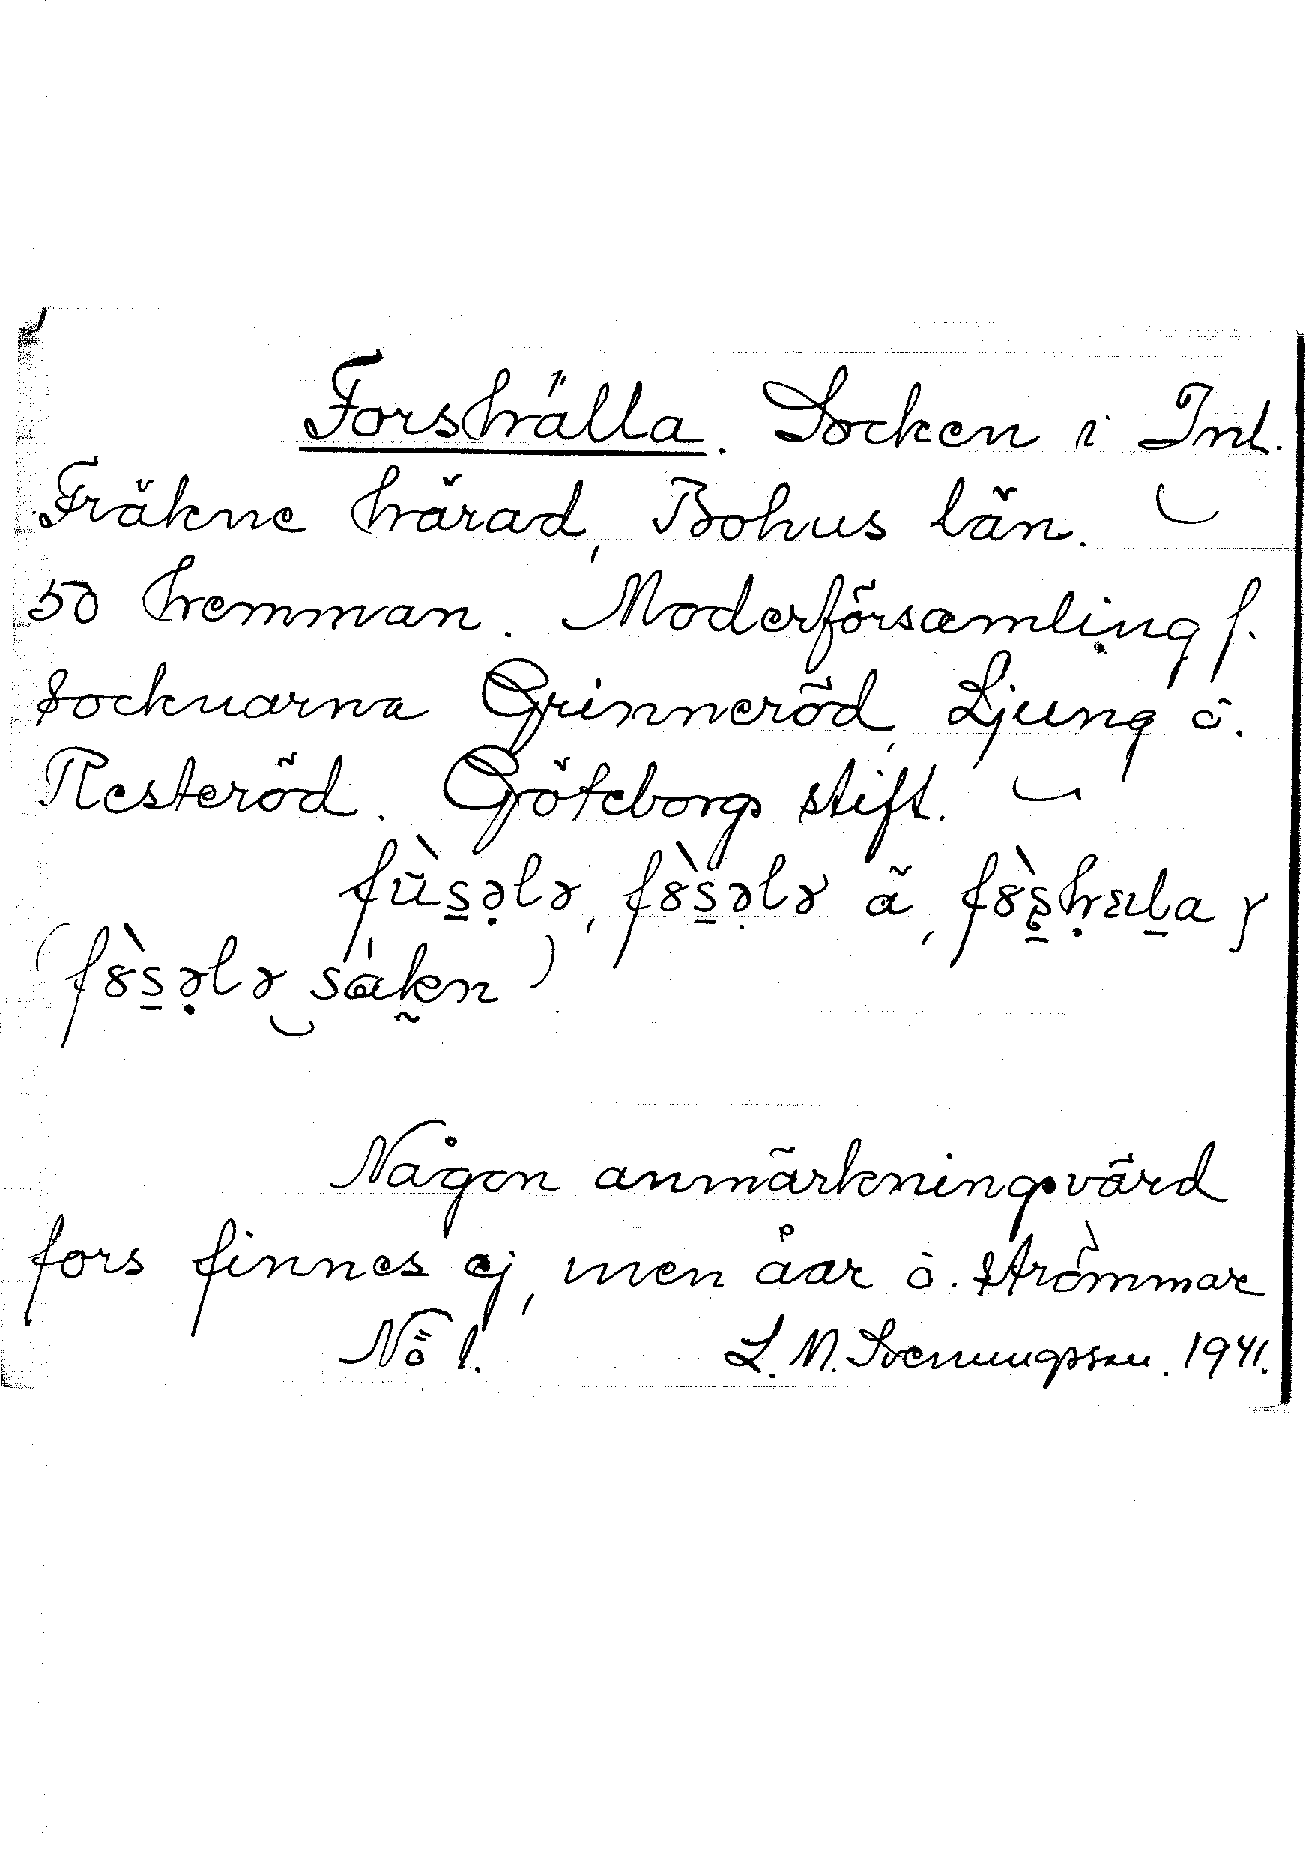 Forshälla. Socken i Inl.
Fräkne härad, Bohus län.
50 hemman. Moderförsamling f.
socknarna Grinneröd, Ljung o.
Resteröd. Göteborgs stift.
fùs̱ə̣lɤ, f8̀s̱ə̣lɤ ã,
(f8̀s̱ə̣lɤ
Någon anmärkningsvärd
fors finnes ej, men åar o. strömmar
No 1. L. M. Svenungsson. 1941.